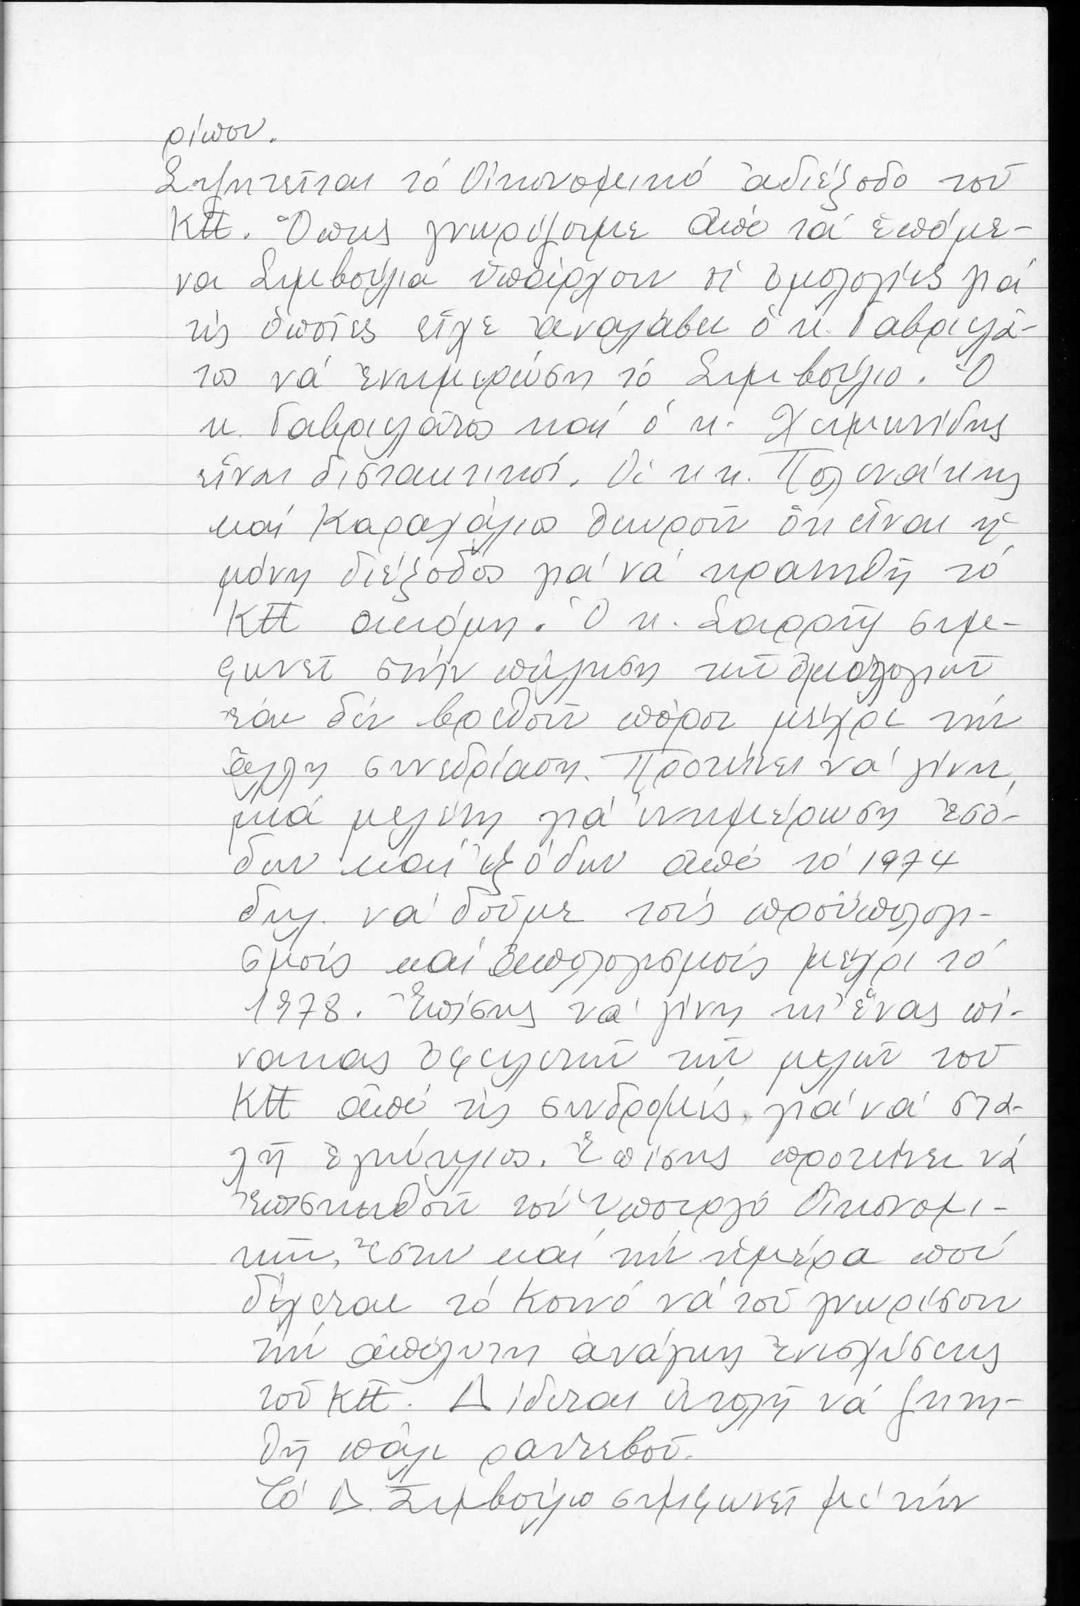 ρίπου.
Συζητεῖται τό Οἰκονομικό ἀδιέξοδο τοῦ
ΚΠ. Ὅπως γνωρίζουμε ἀπό τά ἑπόμε-
να Συμβούλια ὑπάρχουν οἱ ὁμολογίες γιά
τίς ὁποῖες εἶχε ἀναλάβει ὁ κ. Γαβριελά-
τος νά ἐνημερώση τό Συμβούλιο. Ὁ
κ. Γαβριελάτος καί ὁ κ. Χειμωνίδης
εἶναι διστακτικοί. Οἱ κ.κ. Πολενάκης
καί Καραχάλιος θεωροῦν ὅτι εἶναι ἡ
μόνη διέξοδος γιά νά κρατηθῆ τό
ΚΠ ἀκόμη. Ὁ κ. Σαρρῆς συμ-
φωνεῖ στήν πώληση τῶν ὁμολογιῶν
ἐάν δέν βρεθοῦν πόροι μέχρι τήν
ἄλλη συνεδρίαση. Προτείνει νά γίνη
μιά μελέτη γιά ἐνημέρωση ἐσό-
δων καί ἐξόδων ἀπό τό 1974
δηλ. νά δοῦμε τούς προϋπολογι-
σμούς καί ἀπολογισμούς μέχρι τό
1978. Ἐπίσης νά γίνη κι' ἕνας πί-
νακας ὀφειλετῶν τῶν μελῶν τοῦ
ΚΠ ἀπό τίς συνδρομές, γιά νά στα-
λῆ ἐγκύκλιος. Ἐπίσης προτείνει νά
ἐπισκεφθοῦν τόν Ὑπουργό Οἰκονομι-
κῶν, ἔστω καί τήν ἡμέρα πού
δέχεται τό Κοινό νά τοῦ γνωρίσουν
τήν ἀπόλυτη ἀνάγκη ἐνισχύσεως
τοῦ ΚΠ. Δίδεται ἐντολή νά ζητη-
θῆ πάλι ραντεβοῦ.
Τό Δ. Συμβούλιο συμφωνεῖ μέ τήν